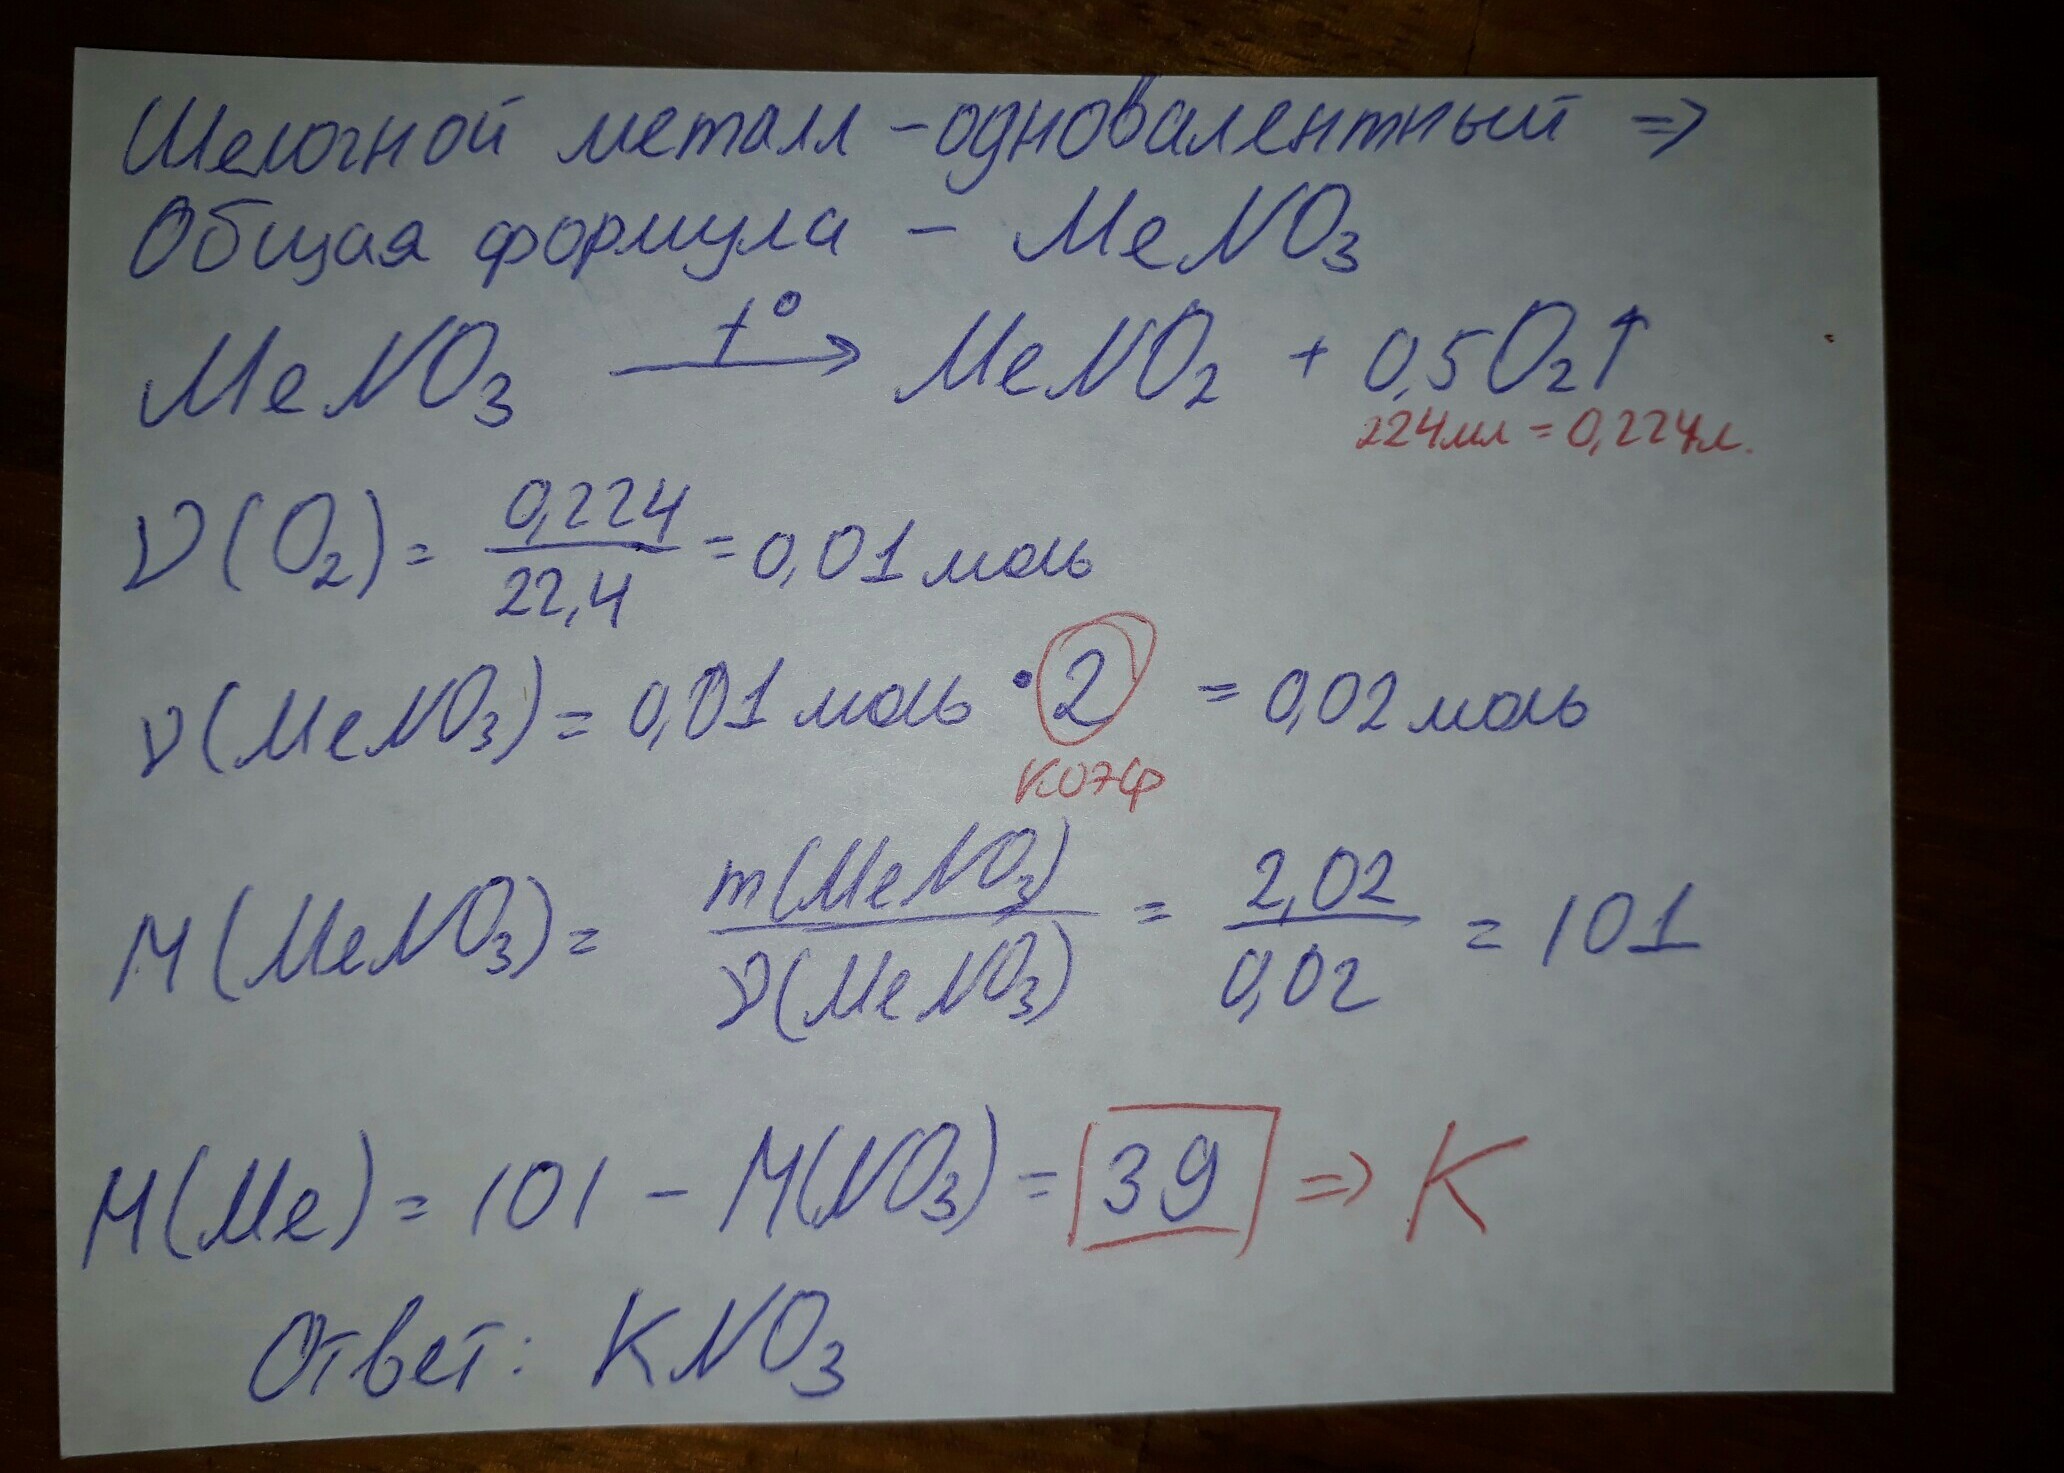 Щелочной металл - одновалентный =>
Общая формула - MeNO3
MeNO3 t° → MeNO2 + 0,5O2↑
224мл = 0,224л.
ν(O2) = 0,224 / 22,4 = 0,01 моль
ν(MeNO3) = 0,01 моль · 2 = 0,02 моль
коэф
M(MeNO3) = m(MeNO3) / ν(MeNO3) = 2,02 / 0,02 = 101
M(Me) = 101 - M(NO3) = 39 => K
Ответ: KNO3